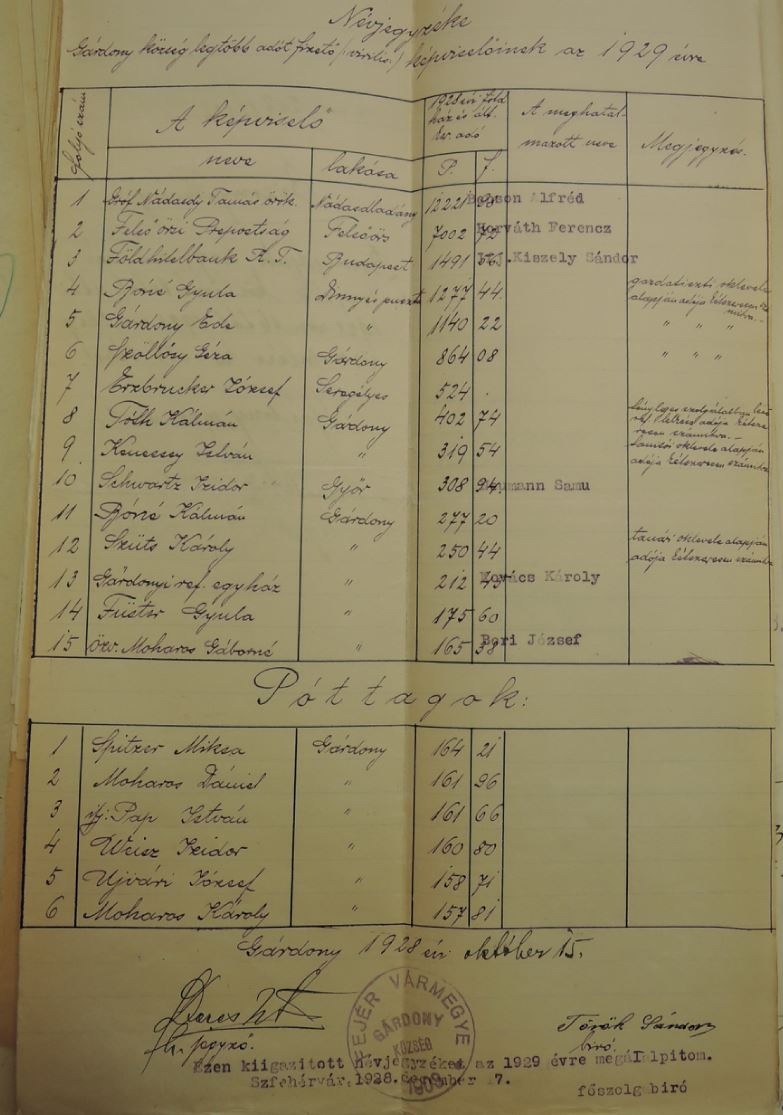 Névjegyzéke
Gárdony község legtöbb adót fizető (virilis) képviselőinek az 1929 évre
folyó szám A képviselő 1928 évi föld ház és ált. ker. adó A meghatalmazott neve Megjegyzés.
neve lakása P. f.
1 Gróf Nádasdy Tamás örök. Nádasdladány 1221 Bobson Alfréd
2 Felsőörsi Prépostság Felsőörs 7002 72 Horváth Ferencz
3 Földhitelbank R.T. Budapest 1491 Kiszely Sándor
4 Bóné Gyula Dinnyés puszta 1277 44. gazdatiszti oklevele alapján adója kétszeresen számítva.-
5 Gárdony Ede " 1140 22 " " "
6 Szőllősy Géza Gárdony 864 08 " " "
7 Erzbrucker József Seregélyes 524 .
8 Tóth Kálmán Gárdony 402 74 tényleges szolgálatban adója kétszeresen számítva.-
9. Kenessey István " 319 54 tanítói oklevele alapján adója kétszeresen számítva
10 Schwartz Izidor Győr 308 94 Naumann Samu
11 Bóné Kálmán Gárdony 277 20
12 Szüts Károly " 250 44 tanári oklevele alapján adója kétszeresen számítva
13 Gárdonyi ref. egyház " 212 Kovács Károly
14 Füster Gyula " 175 60
15 özv. Moharos Gáborné " 165 38 Bori József
Póttagok:
1 Spitzer Miksa Gárdony 164 21
2 Moharos Dániel " 161 96
3 ifj. Pap István " 161 66
4 Weisz Izidor " 160 80
5 Ujvári József " 158 71
6 Moharos Károly " 157 81
Gárdony 1928 évi október 15.
FEJÉR VÁRMEGYE
GÁRDONY
KÖZSÉG
Török Sándor
jegyző. bíró.
Ezen kiigazitott névjegyzéket az 1929 évre megállapitom.
Szfehérvár, 1928. december 17.
főszolgabiró